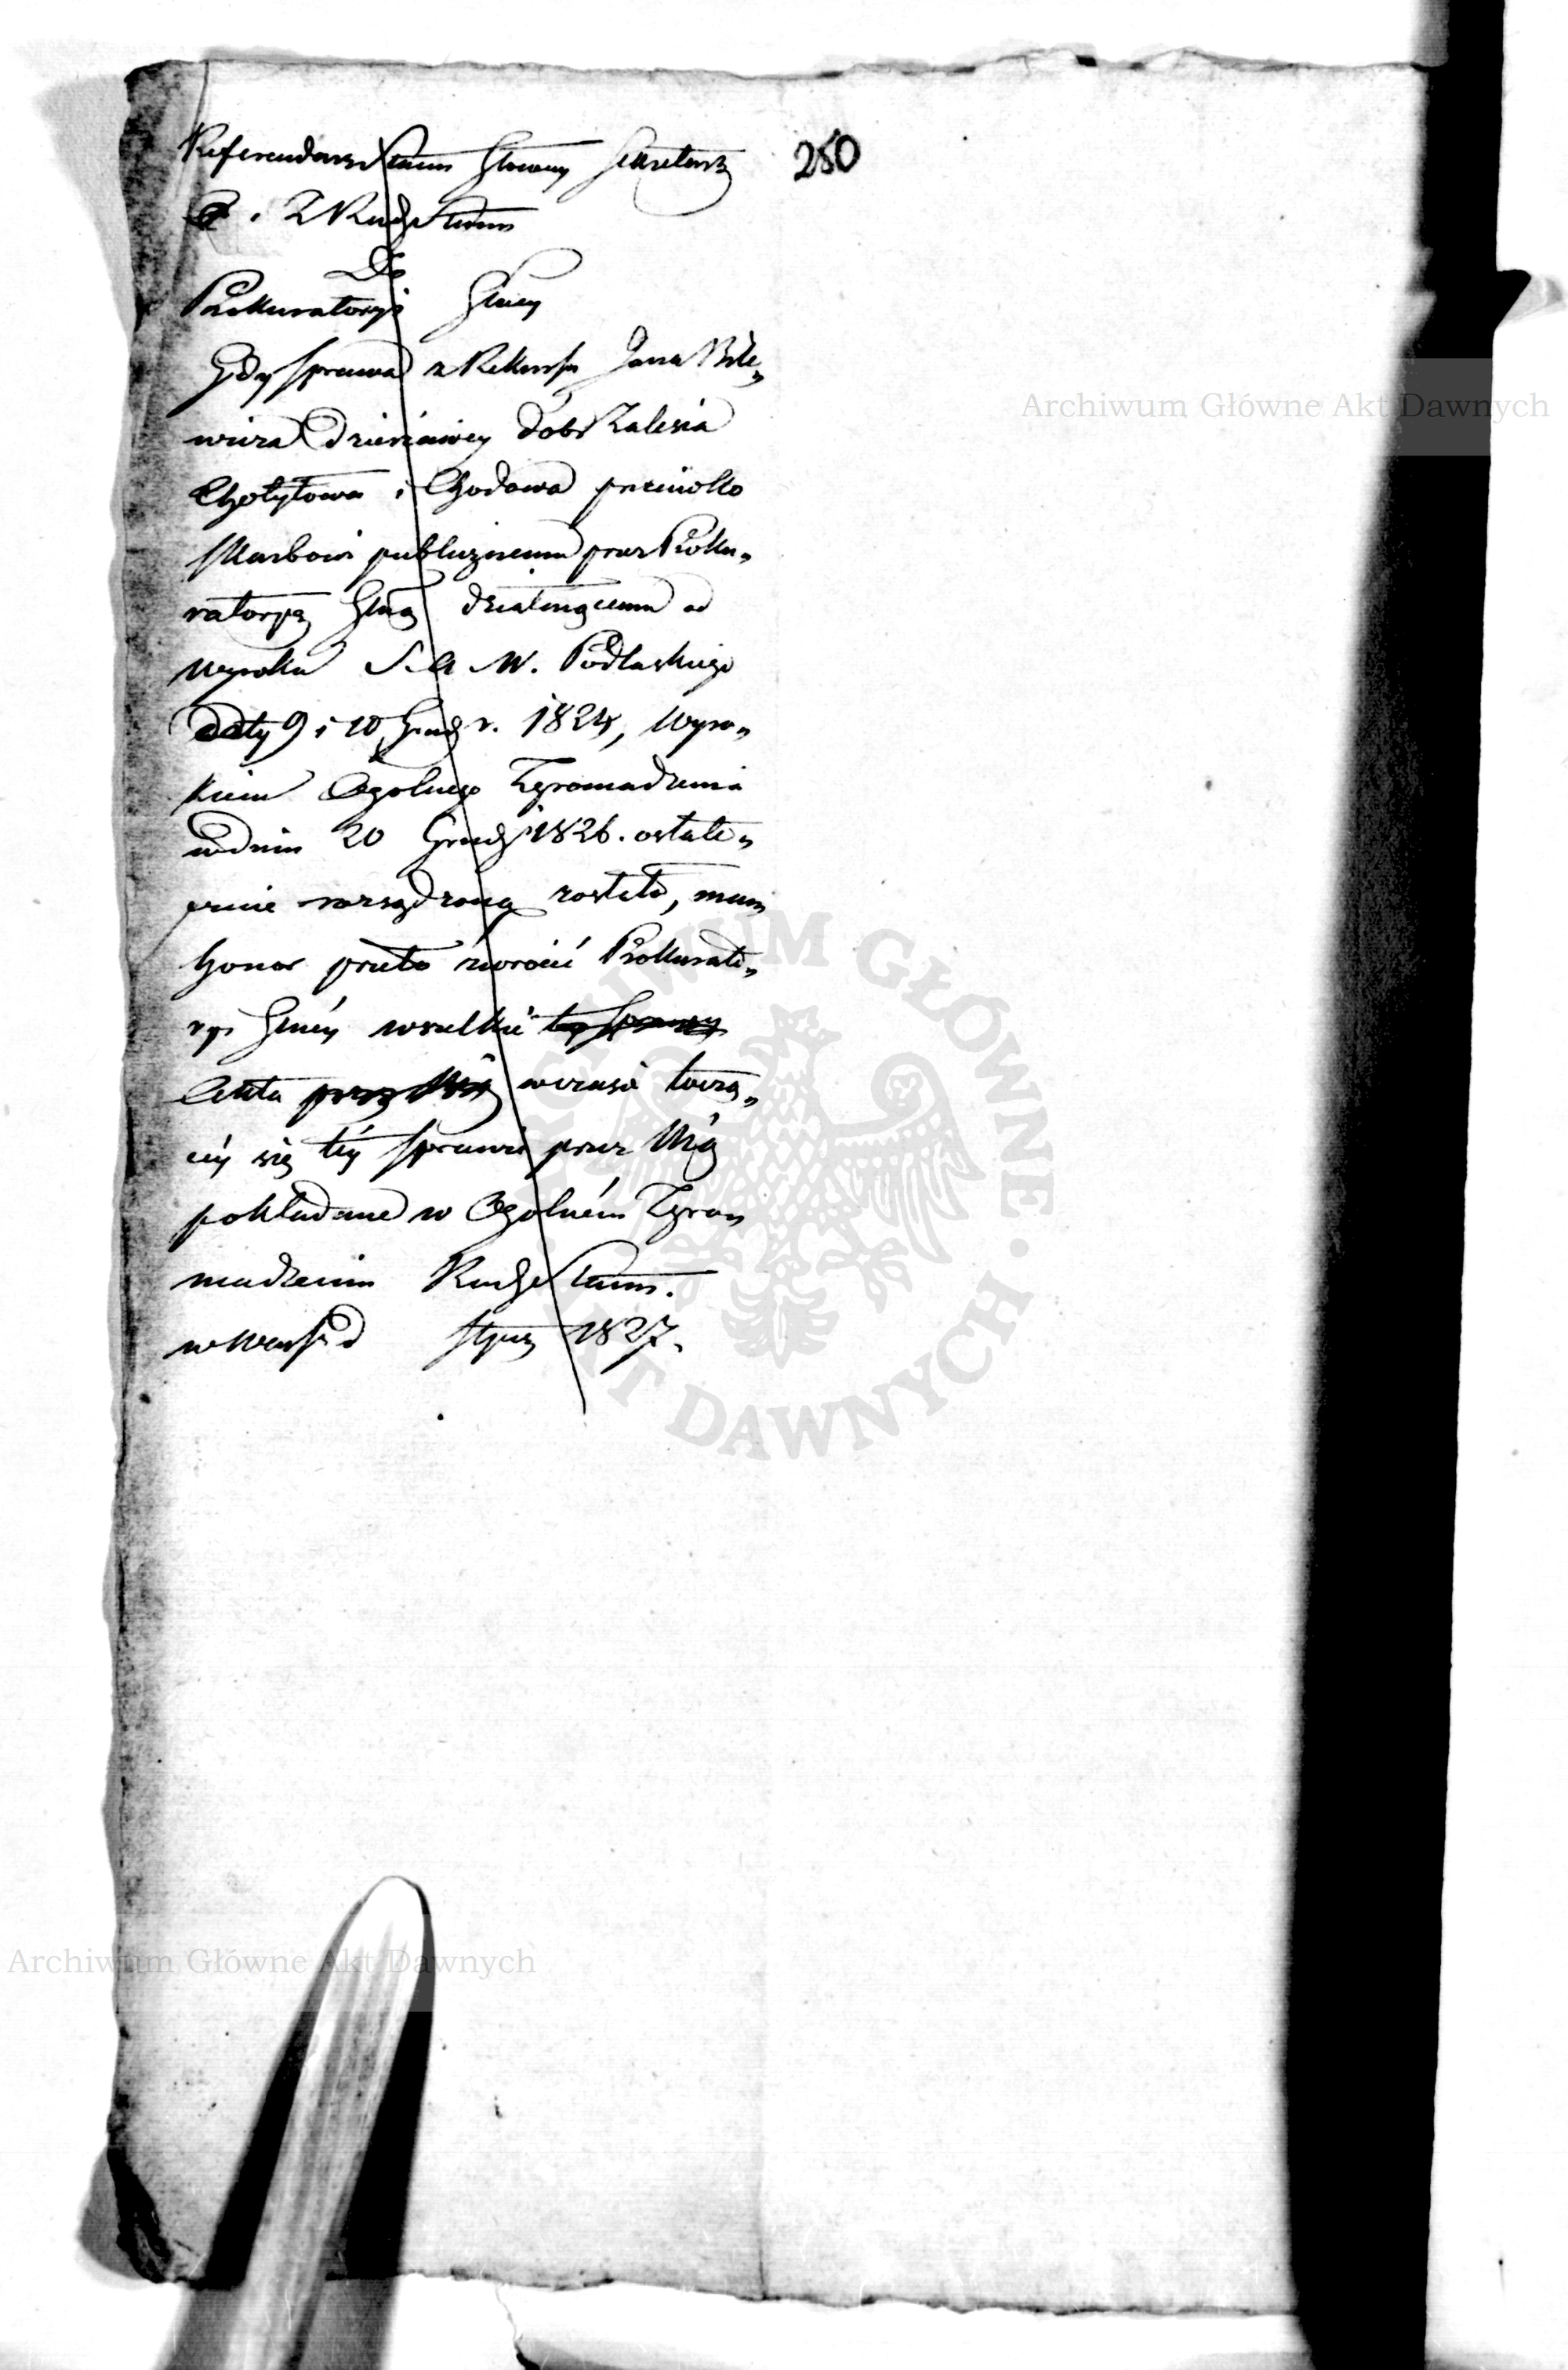 Referendarz Stanu Główny Sekretarz
250
i Z Rady Stanu
Do
Prokuratoryi Głney
Gdy sprawa z Rekursu Jana Bile„
wicza Dzierżawcy dóbr Zalesia
Chotyłowa i Chodowa przeciwko
Skarbowi publicznemu przez Proku„
ratoryą Głną działaiącemu od
wyroku S. A. W. Podlaskiego
daty 9 i 10 Grud. r. 1824, Wyro„
kiem Ogolnego Zgromadzenia
w dniu 20 Grud. 1826. ostate„
cznie rozsądzoną została, mam
honor przeto zwrócić Prokurato„
ryi Głnéy wszelkie tey sprawy
Akta przez Nią w czasie toczą„
céy się téy sprawie przez Nią
pokładane w Ogolném Zgro„
madzeniu Rady Stanu.
w Warsz. d Stycz 1827.
Archiwum Główne Akt Dawnych
ARCHIWUM GŁÓWNE AKT DAWNYCH
Archiwum Główne Akt Dawnych